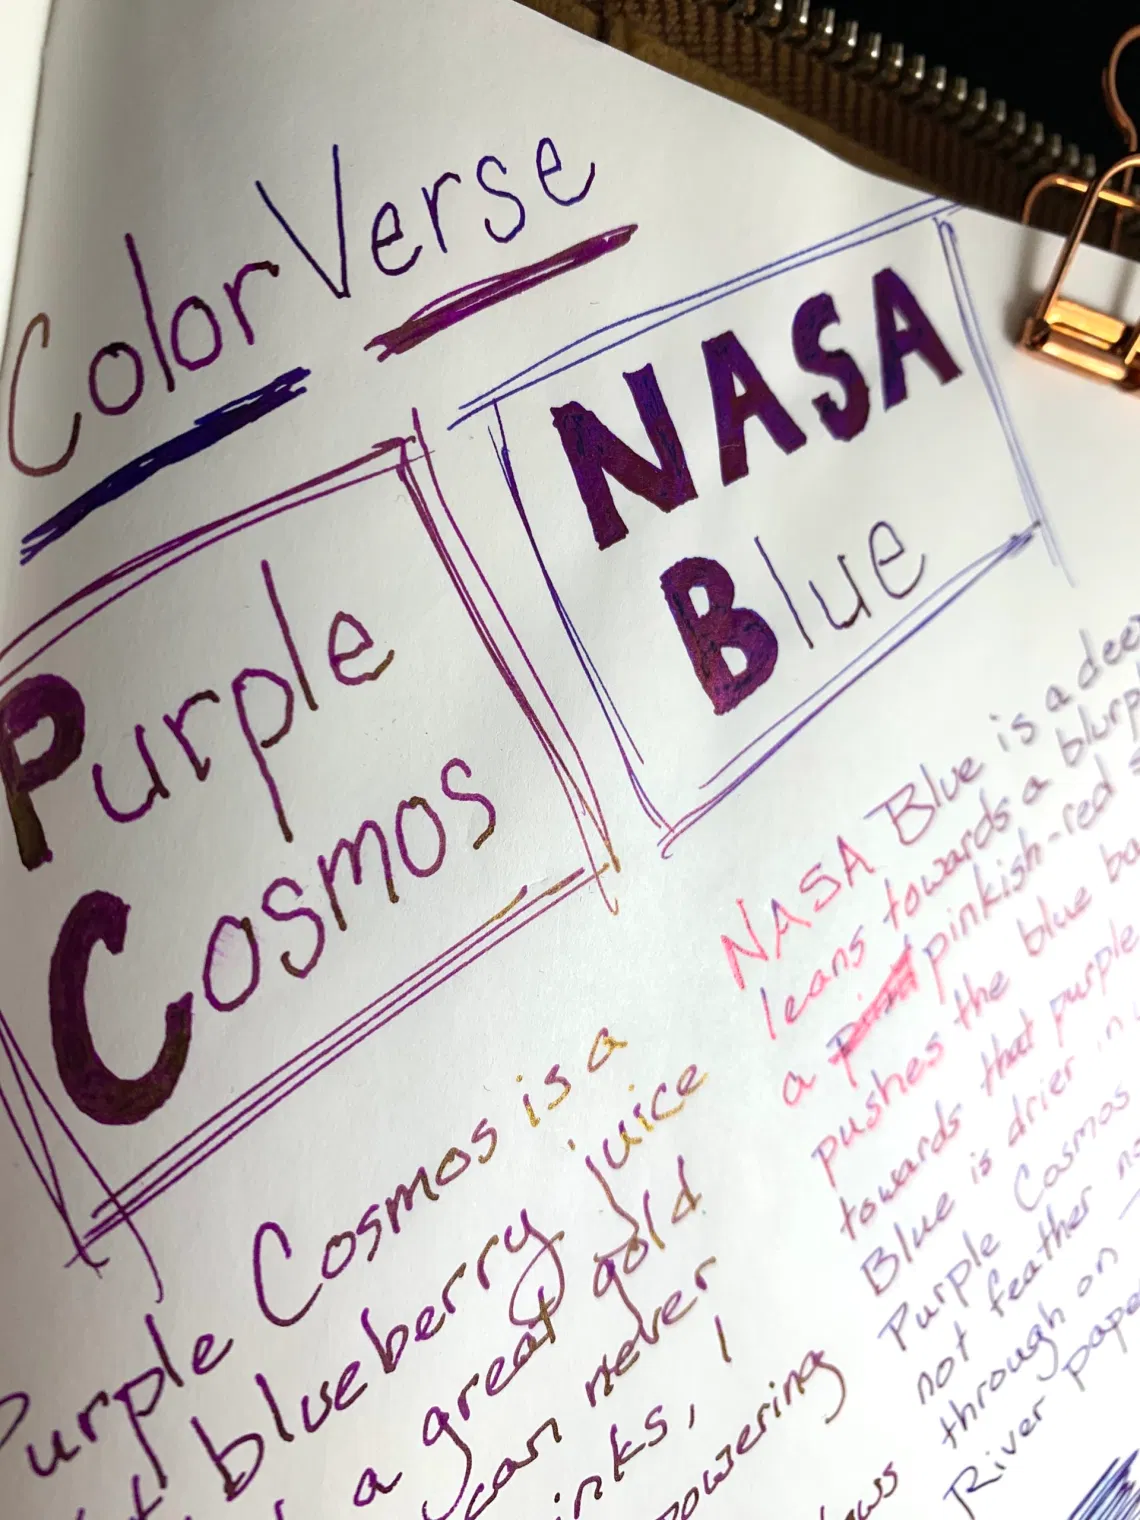 ColorVerse
Purple
Cosmos
NASA
Blue
Purple Cosmos is a
blueberry juice
a great gold
can never
inks, I
powering
NASA Blue is a deep
leans towards a
a pinkish-red
pushes the blue
towards that purple
Blue is drier in
Purple Cosmos
not feather
through on
River paper